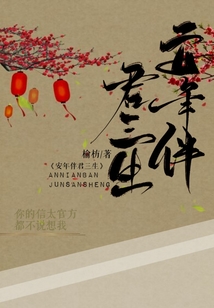 安年伴
君三生
榆枋/著
《安年伴君三生》
ANNIANBAN
JUNSANSHENG
你的信太官方
都不说想我